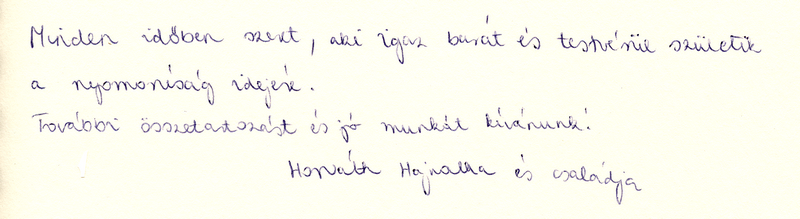 Minden időben szeret, aki igaz barát és testvérüe születik
a nyomorúság idejére.
További összetartozást és jó munkát kívánunk!
Horváth Hajnalka és családja